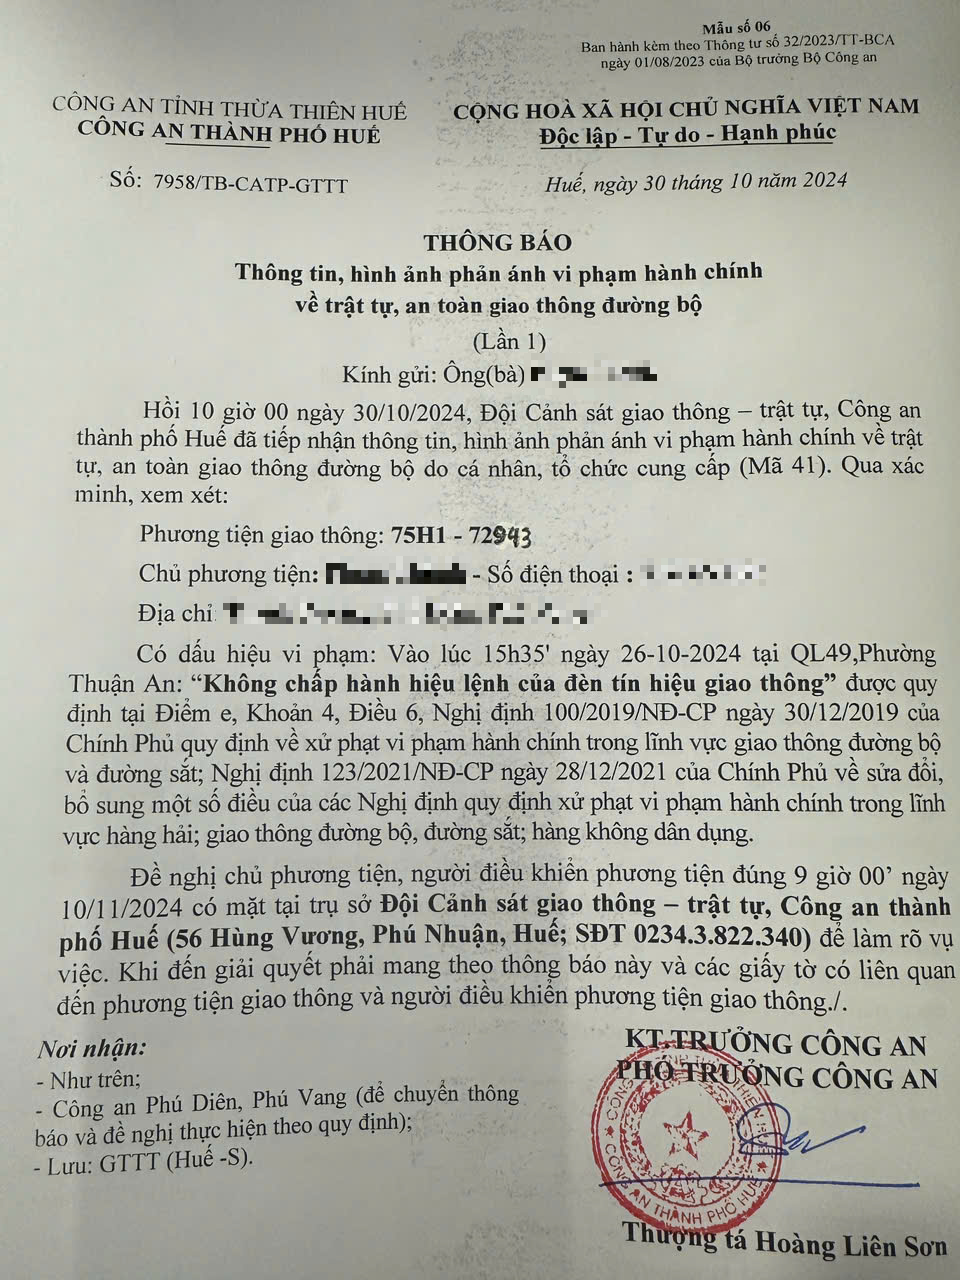 Mẫu số 06
Ban hành kèm theo Thông tư số 32/2023/TT-BCA
ngày 01/08/2023 của Bộ trưởng Bộ Công an
CÔNG AN TỈNH THỪA THIÊN HUẾ
CÔNG AN THÀNH PHỐ HUẾ
Số: 7958/TB-CATP-GTTT
CỘNG HOÀ XÃ HỘI CHỦ NGHĨA VIỆT NAM
Độc lập - Tự do - Hạnh phúc
Huế, ngày 30 tháng 10 năm 2024
THÔNG BÁO
Thông tin, hình ảnh phản ánh vi phạm hành chính
về trật tự, an toàn giao thông đường bộ
(Lần 1)
Kính gửi: Ông(bà)
Hồi 10 giờ 00 ngày 30/10/2024, Đội Cảnh sát giao thông – trật tự, Công an
thành phố Huế đã tiếp nhận thông tin, hình ảnh phản ánh vi phạm hành chính về trật
tự, an toàn giao thông đường bộ do cá nhân, tổ chức cung cấp (Mã 41). Qua xác
minh, xem xét:
Phương tiện giao thông: 75H1 - 72943
Chủ phương tiện: - Số điện thoại :
Địa chỉ
Có dấu hiệu vi phạm: Vào lúc 15h35' ngày 26-10-2024 tại QL49,Phường
Thuận An: “Không chấp hành hiệu lệnh của đèn tín hiệu giao thông” được quy
định tại Điểm e, Khoản 4, Điều 6, Nghị định 100/2019/NĐ-CP ngày 30/12/2019 của
Chính Phủ quy định về xử phạt vi phạm hành chính trong lĩnh vực giao thông đường bộ
và đường sắt; Nghị định 123/2021/NĐ-CP ngày 28/12/2021 của Chính Phủ về sửa đổi,
bổ sung một số điều của các Nghị định quy định xử phạt vi phạm hành chính trong lĩnh
vực hàng hải; giao thông đường bộ, đường sắt; hàng không dân dụng.
Đề nghị chủ phương tiện, người điều khiển phương tiện đúng 9 giờ 00’ ngày
10/11/2024 có mặt tại trụ sở Đội Cảnh sát giao thông – trật tự, Công an thành
phố Huế (56 Hùng Vương, Phú Nhuận, Huế; SĐT 0234.3.822.340) để làm rõ vụ
việc. Khi đến giải quyết phải mang theo thông báo này và các giấy tờ có liên quan
đến phương tiện giao thông và người điều khiển phương tiện giao thông./.
Nơi nhận:
- Như trên;
- Công an Phú Diên, Phú Vang (để chuyển thông
báo và đề nghị thực hiện theo quy định);
- Lưu: GTTT (Huế -S).
KT.TRƯỞNG CÔNG AN
PHÓ TRƯỞNG CÔNG AN
CÔNG AN THÀNH PHỐ HUẾ
Thượng tá Hoàng Liên Sơn